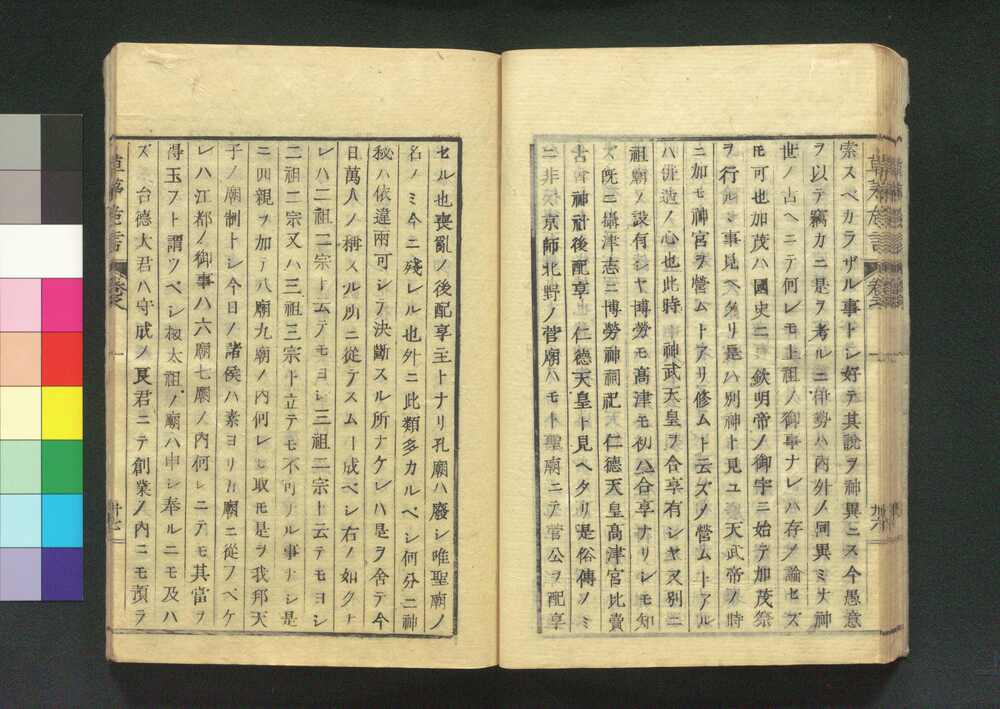 索スベカラザル事トシ好テ其說ヲ神異ニス今愚意
ヲ以テ竊カニ是ヲ考ルニ伊勢ハ內外ノ同異ミナ神
世ノ古ヘニテ何レモ上祖ノ御事ナレハ存ノ論セズ
モ可也加茂ハ國史ニ欽明帝ノ御宇ニ始テ加茂祭
ヲ行ルヽ事見ヘタリ是ハ別神ト見ユ天武帝ノ時
ニ加モ神宮ヲ營ムトアリ修ムト云ズノ營ムトアル
ハ俳造ノ心也此時神武天皇ヲ合享有シヤ又別ニ
祖廟ノ設有シヤ博勞モ高津モ初ハ合享ナリシモ知
ズ旣ニ攝津志ニ博勞神祠祀仁德天皇高津宮比賣
古曾神社後配享仁德天皇ト見ヘタリ是俗傳ノミ
ニ非知京師北野ノ菅廟ハモト聖廟ニテ菅公ヲ配享
セル也喪亂ノ後配享主トナリ孔廟ハ廢シ唯聖廟ノ
名ノミ今ニ殘レル也外ニ此類多カルベシ何分ニ神
秘ハ依違兩可シテ決斷スル所ナケレハ是ヲ舍テ今
日萬人ノ稱スル所ニ從テスムー成ベシ右ノ如クナ
レハ二祖二宗ト云テモヨシ三祖二宗ト云テモヨシ
二祖二宗又ハ三祖三宗ト立テモ不可ナル事ナシ是
ニ四親ヲ加テ八廟九廟ノ內何レヒ取モ是ヲ我邦天
子ノ廟制トシ今日ノ諸侯ハ素ヨリ五廟ニ從フベケ
レハ江都ノ御事ハ六廟七廟ノ內何レニテモ其當ヲ
得玉フト謂ツベシ扨太祖ノ廟ハ申シ奉ルニモ及ハ
ズ台德大君ハ守成ノ良君ニテ創業ノ內ニモ預ラ